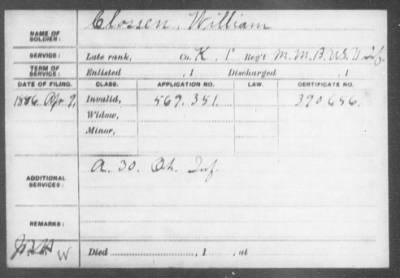 NAME OF SOLDIER: Clossen, William
SERVICE: Late rank, Co. K, 1" Reg't M.M.B. U.S. Inf.
TERM OF SERVICE: Enlisted , 1 Discharged , 1
DATE OF FILING. CLASS. APPLICATION NO. LAW. CERTIFICATE NO.
1886 Apr. 9, Invalid, 569.351. 390656.
Widow,
Minor,
ADDITIONAL SERVICES: A. 30. Oh. Inf.
REMARKS:
W Died , 1 , at